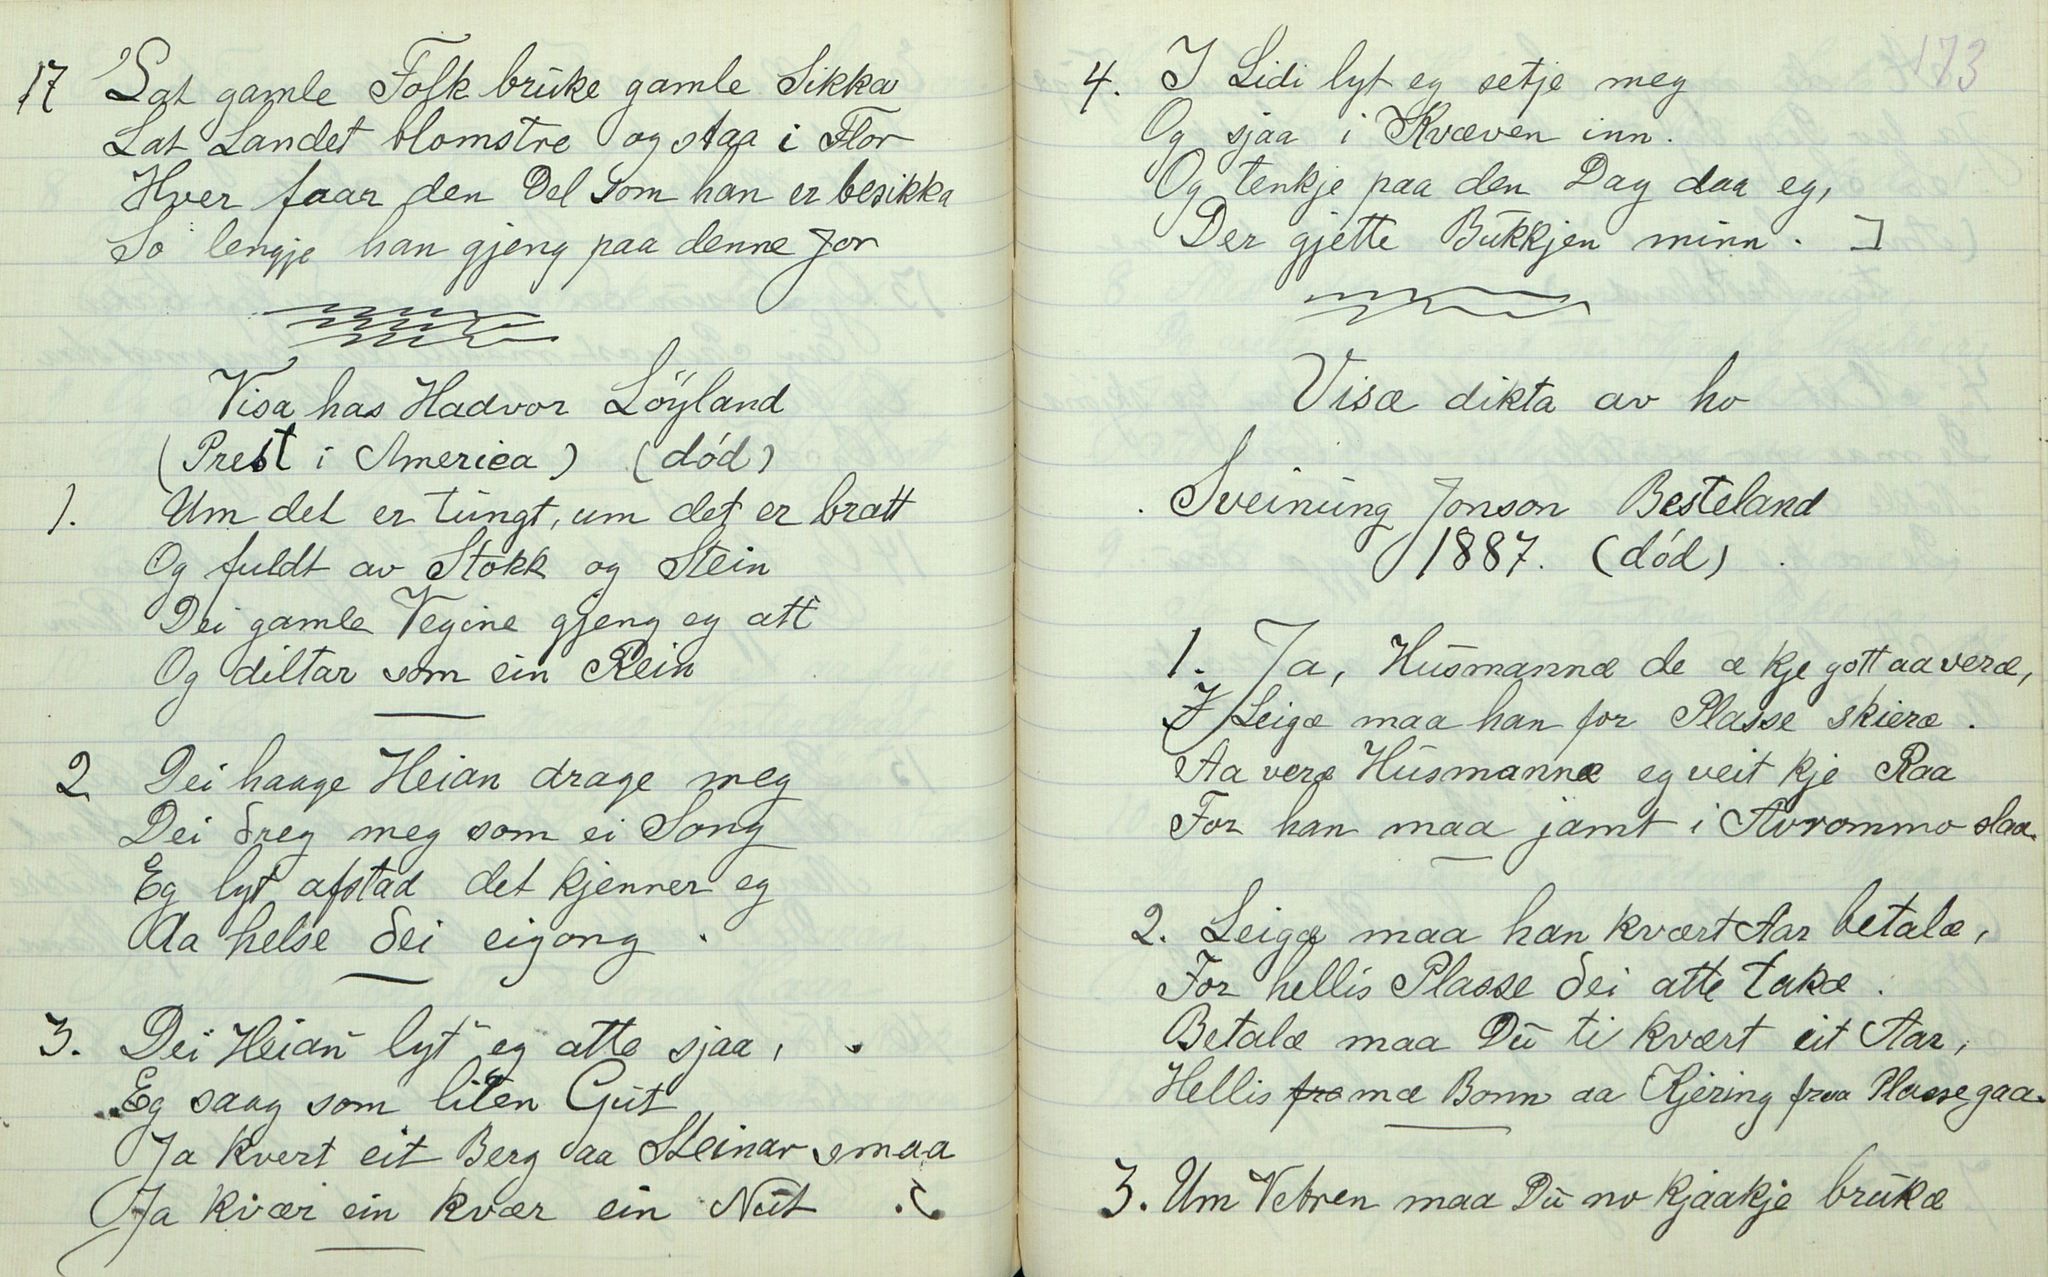 17 Lat gamle Folk bruke gamle Sikka
Lat Landet blomstre og staa i Flor
Hver faar den Del som han er besikka
So lengje han gjeng paa denne Jor
Visa has Hadvor Löyland
(Prest i America) (död)
1. Um det er tungt, um det er bratt
Og fuldt av Stokk og Stein
Dei gamle Vegine gjeng eg att
Og diltar som ein Rein
2 Dei haage Heian drage meg
Dei dreg meg som ei Song
Eg lyt afstad det kjenner eg
Aa helse dei eigong.
3. Dei Heian lyt eg atte sjaa,
Eg saag som liten Gut
Ja kvert eit Berg aa Steinar smaa
Ja kvær ein kvær ein Nut.
173
4. I Lidi lyt eg setje meg
Og sjaa i Kvæven inn.
Og tenkje paa den Dag daa eg,
Der gjette Bukkjen minn.
Visæ dikta av ho
Sveinung Jonson Besteland
1887. (död)
1. Ja, Husmannæ de æ kje gott aa veræ,
I Leigæ maa han for Plasse skjeræ.
Aa veræ Husmannæ eg veit kje Raa
For han maa jamt i Avrommo slaa.
2. Leigæ maa han kvært Aar betalæ,
For hellis Plasse dei atte takæ.
Betalæ maa Du ti kvært eit Aar,
Hellis fra mæ Bonn aa Kjering fraa Plasse gaa.
3. Um Vetren maa Du no kjaakje brukæ